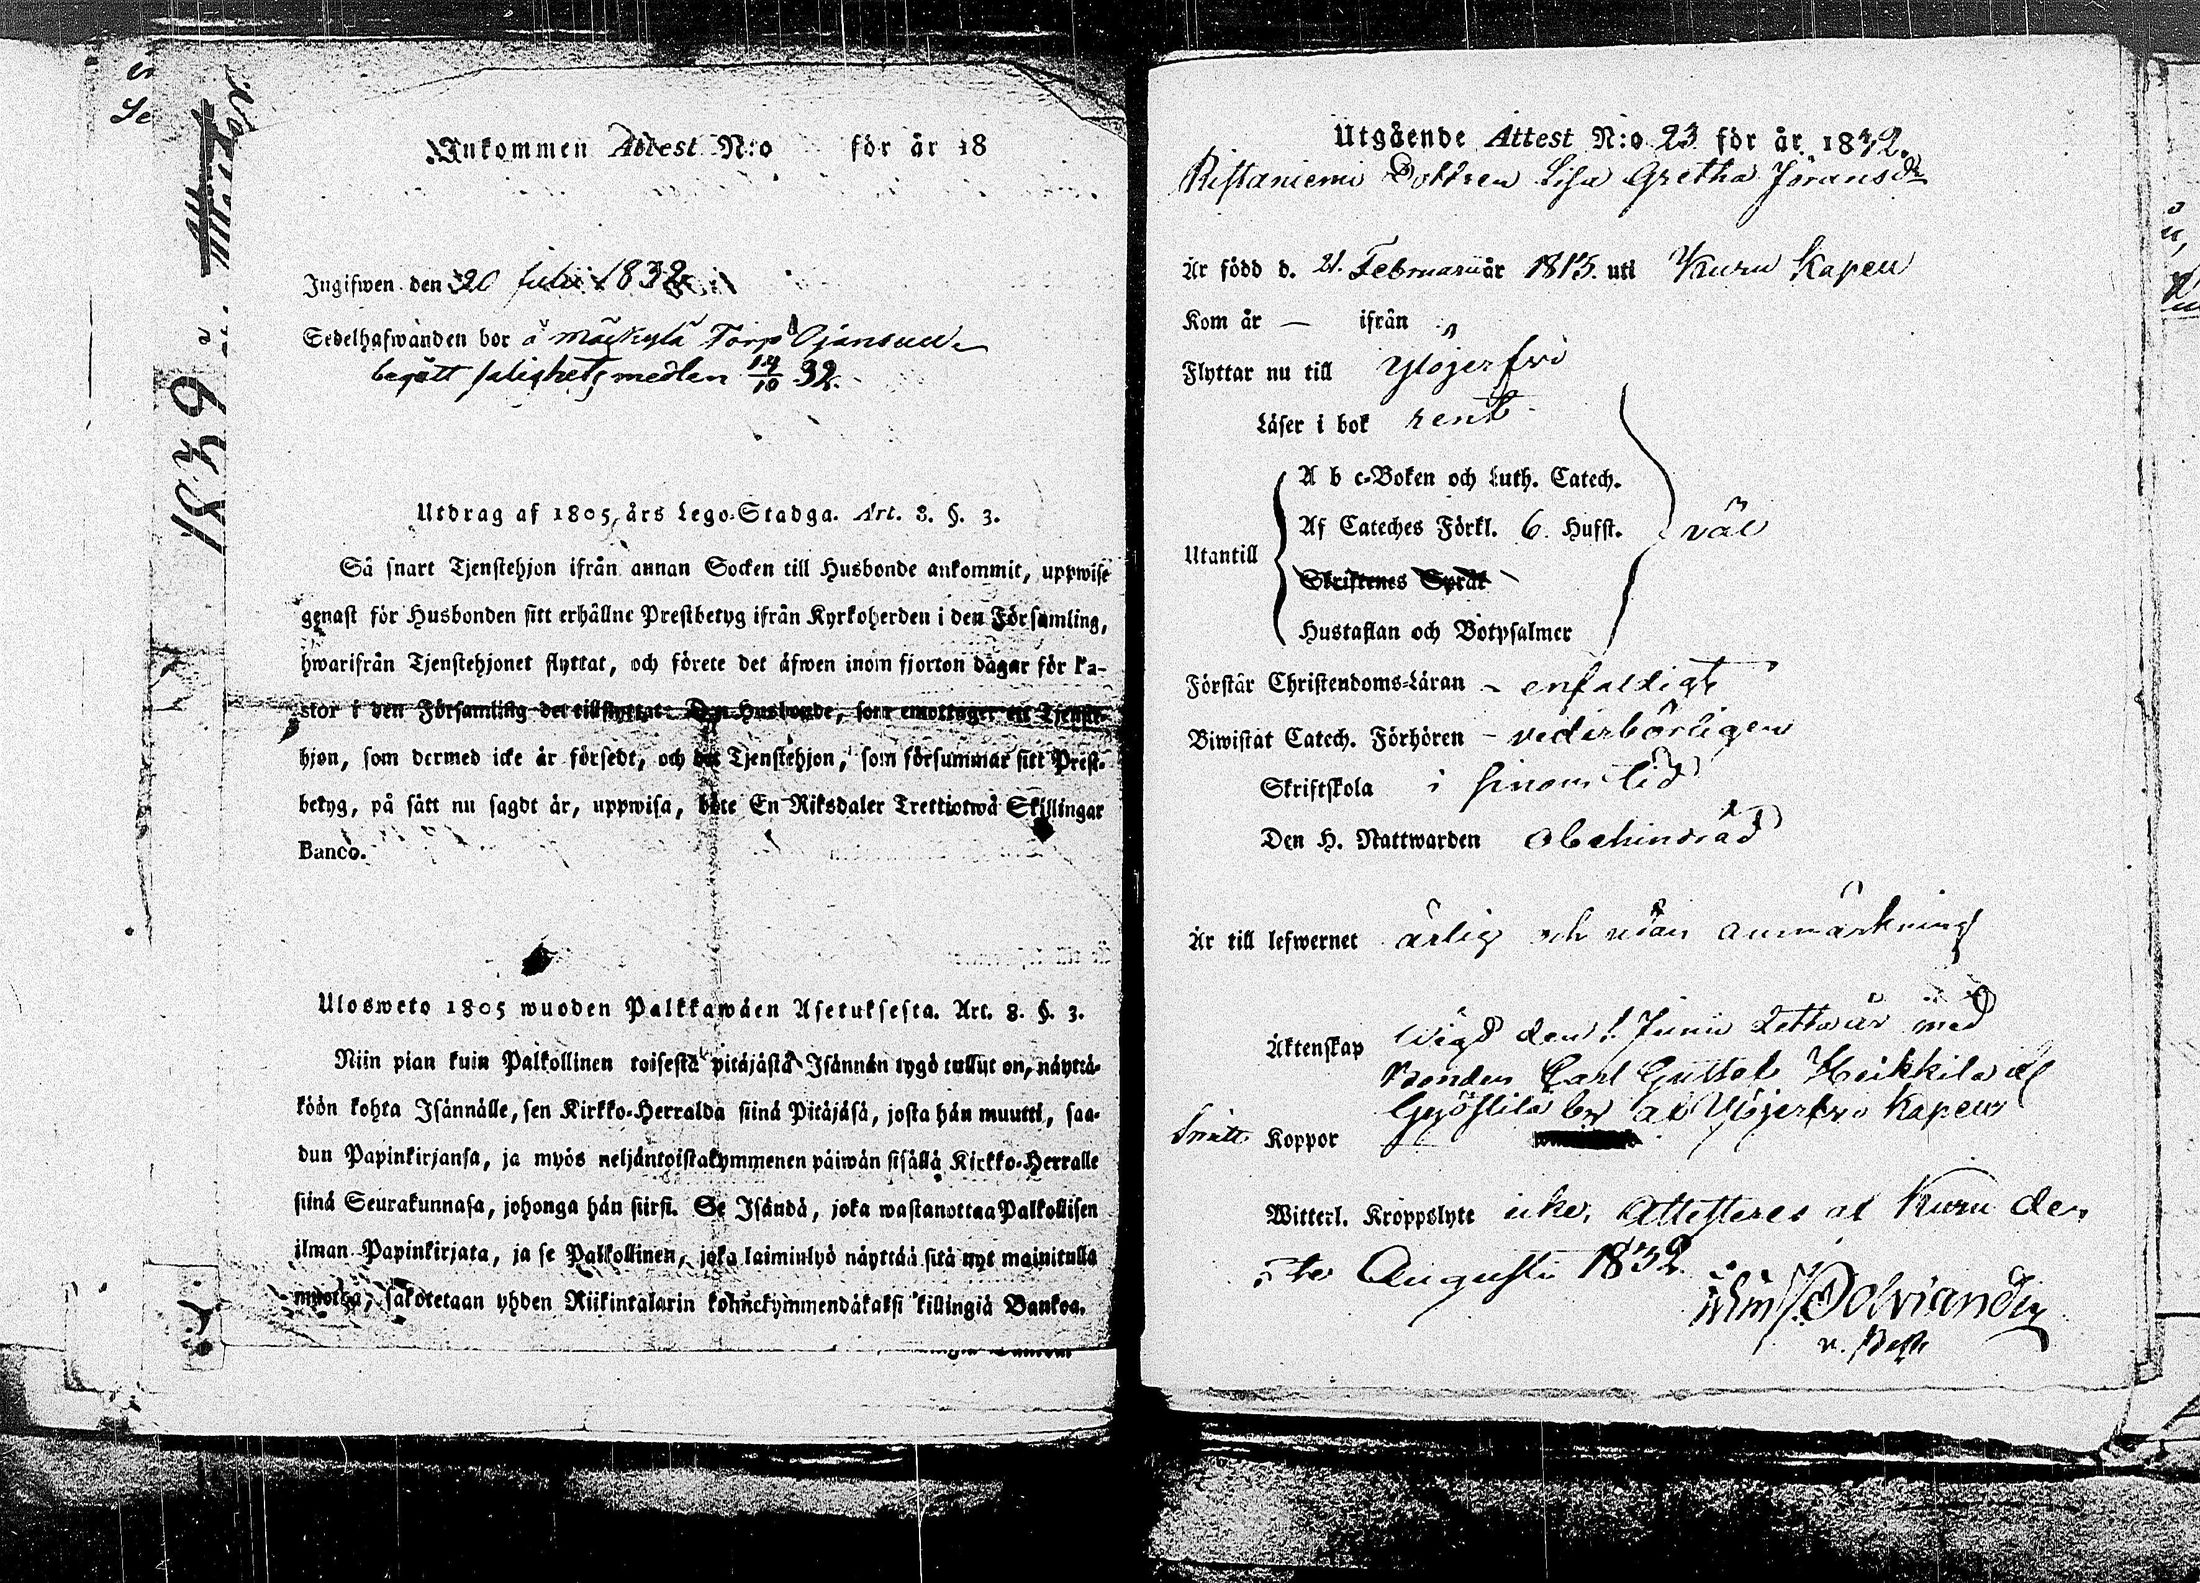 Inkommen Attest N:o för år 18
Ingifwen den 20 Julii 1832
Sedelhafwanden bor å Mäckylä Torp Ojansuu
begått salighets medlen 14/10 32.
Utdrag af 1805 års Lego-Stadga. Art. 8. §. 3.
Så snart Tjenstehjon ifrån annan Socken till Husbonde ankommit, uppwise
genast för Husbonden sitt erhållne Prestbetyg ifrån Kyrkoherden i den Församling,
hwarifrån Tjenstehjonet flyttat, och förete det äfwen inom fjorton dagar för Pa-
stor i den Församling det tillflyttat. Den Husbonde, som emottager ett Tjenste-
hjon, som dermed icke är försedt, och det Tjenstehjon, som försummar sitt Prest-
betyg, på sätt nu sagdt är, uppwisa, böte En Riksdaler Trettiotwå Skillingar
Banco.
Ulosweto 1805 wuoden Palkkawäen Asetuksesta. Art. 8. §. 3.
Niin pian kuin Palkollinen toisesta pitäjästä Isännän tygö tullut on, näyttä-
köön kohta Isännälle, sen Kirkko-Herralda siinä Pitäjäsä, josta hän muutti, saa-
dun Papinkirjansa, ja myös neljäntoistakymmenen päiwän sisällä Kirkko-Herralle
siinä Seurakunnasa, johonga hän siirsi. Se Isändä, joka wastanottaa Palkollisen
ilman Papinkirjata, ja se Palkollinen, joka laiminlyö näyttää sitä nyt mainitulla
muotoa, sakotetaan yhden Riikintalarin kolmekymmendäkaksi killingiä Bankoa.
1832
Utgående Attest N:o 23 för år 1832.
Ristaniemi Dottren Lisa Gretha Jöransdr
Är född d. 21. Februarii år 1813. uti Kuru Kapell
Kom år — ifrån
Flyttar nu till Ylöjerfvi
Läser i bok rent
A b c-Boken och Luth. Catech.
Af Cateches Förkl. 6. Hufst. väl
Utantill
Skriftenes Språk
Hustaflan och Botpsalmer
Förstår Christendoms-Läran - enfaldigt
Biwistat Catech. Förhören - vederbörligen
Skriftskola i sinom tid
Den H. Nattwarden obehindrad
Är till lefwernet ärlig och utan anmärkning
Äktenskap Wigd den 1. Junii detta år med
Bonden Carl Gustaf Heikkilä
af Ylöjerfvi Kapell
Smitt Koppor
Witterl. Kroppslyte icke, Attesteras af Kuru den
Augusti 1832